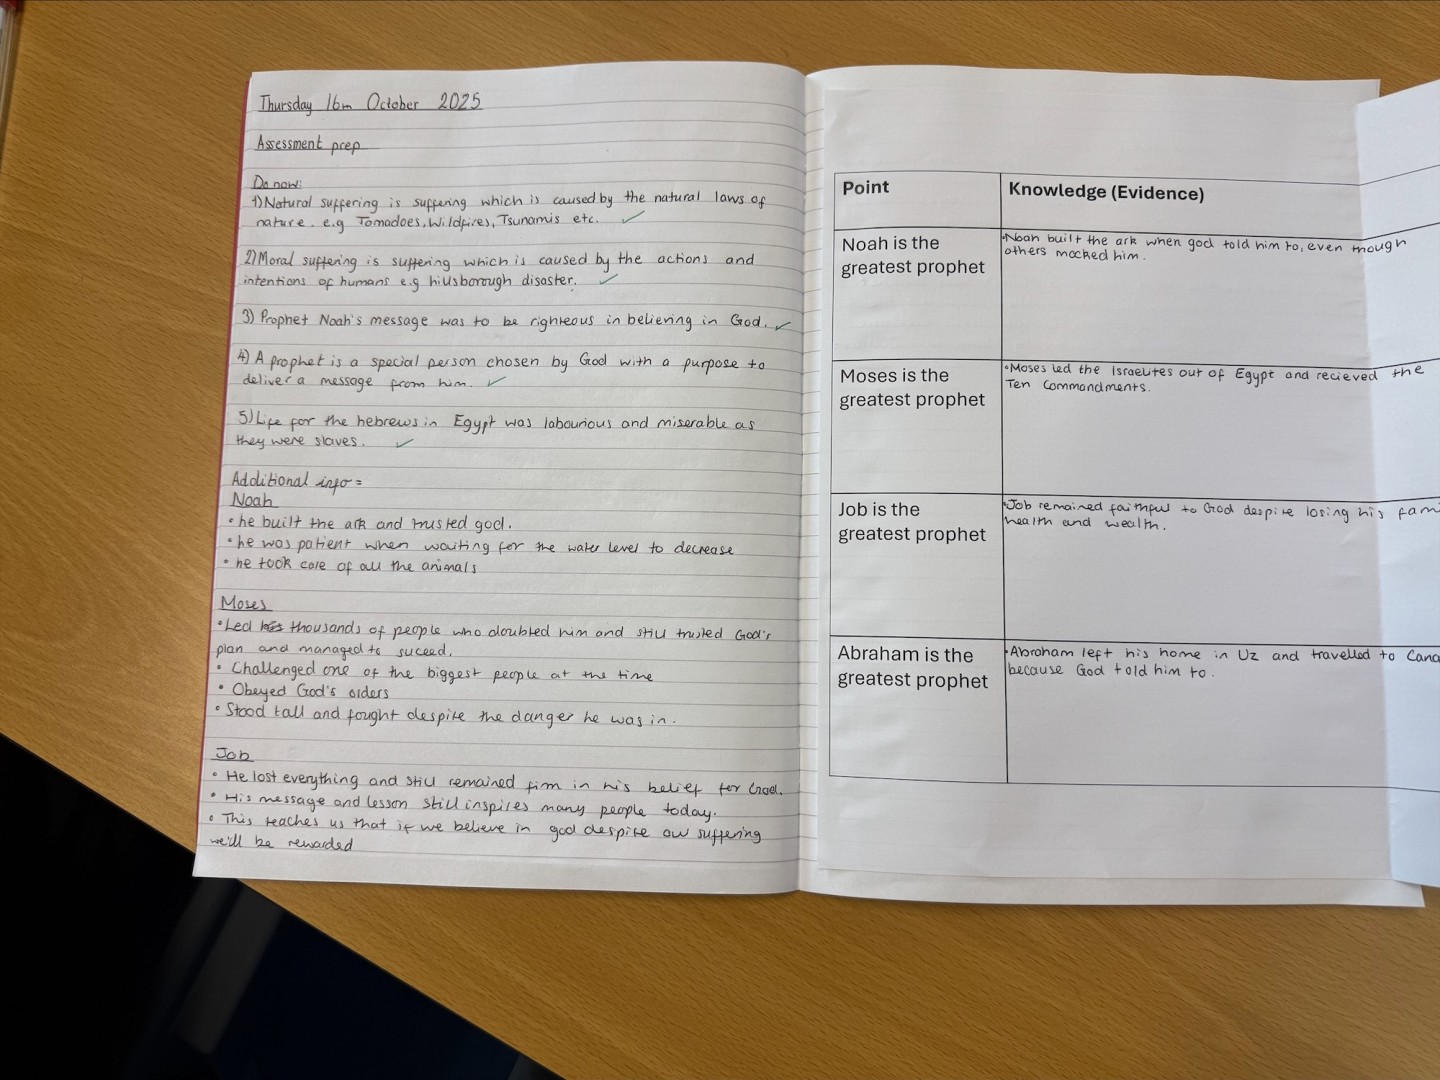 Thursday 16th October 2025
Assessment prep
Do now:
1) Natural suffering is suffering which is caused by the natural laws of
nature. e.g Tornadoes, Wildfires, Tsunamis etc.
2) Moral suffering is suffering which is caused by the actions and
intentions of humans e.g hillsborough disaster.
3) Prophet Noah's message was to be righteous in believing in God.
4) A prophet is a special person chosen by God with a purpose to
deliver a message from him.
5) Life for the hebrews in Egypt was labourious and miserable as
they were slaves.
Additional info =
Noah
• he built the ark and trusted god.
• he was patient when waiting for the water level to decrease
• he took care of all the animals
Moses
• Led thousands of people who doubted him and still trusted God's
plan and managed to suceed.
• Challenged one of the biggest people at the time
• Obeyed God's orders
• Stood tall and fought despite the danger he was in.
Job
• He lost everything and still remained firm in his belief for God.
• His message and lesson still inspires many people today.
• This teaches us that if we believe in god despite our suffering
we'll be rewarded
Point
Knowledge (Evidence)
Noah is the
greatest prophet
• Noah built the ark when god told him to, even though
others mocked him.
Moses is the
greatest prophet
• Moses led the Israelites out of Egypt and recieved the
Ten Commandments.
Job is the
greatest prophet
• Job remained faithful to God despite losing his fami
health and wealth.
Abraham is the
greatest prophet
• Abraham left his home in Uz and travelled to Cana
because God told him to.